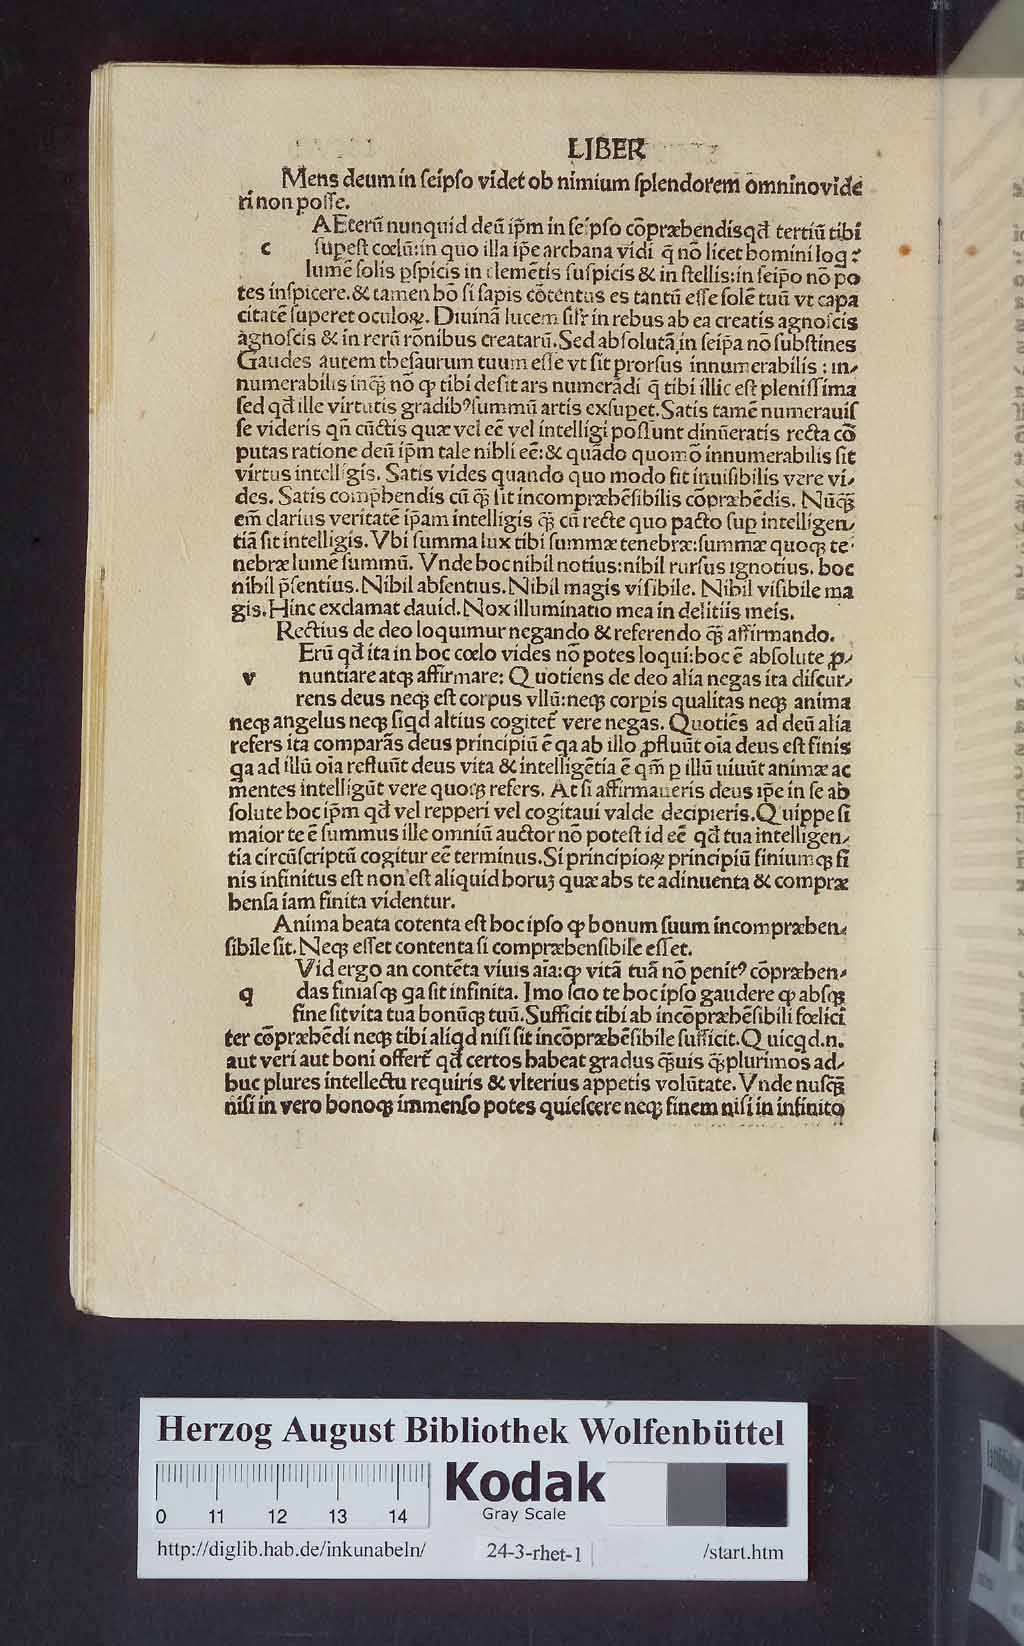 LIBER
Mens deum in ſeipſo videt ob nimium ſplendorem omnino vide
ri non poſſe.
AEterū nunquid deū ip̄m in ſeipſo cōpræhendis qđ tertiū tibi
c ſupeſt cœlū: in quo illa ip̄e archana vidi q̄ nō licet homini loq?
lumē ſolis ꝑſpicis in elemētis ſuſpicis & in ſtellis: in ſeip̄o nō po
tes inſpicere. & tamen hō ſi ſapis cōtentus es tantū eſſe ſolē tuū vt capa
citatē ſuperet oculoꝝ. Diuinā lucem ſilr̄ in rebus ab ea creatis agnoſcis
agnoſcis & in rerū rōnibus creatarū. Sed abſolutā in ſeip̄a nō ſubſtines
Gaudes autem theſaurum tuum eſſe vt ſit prorſus innumerabilis: in-
numerabilis inqꝫ nō ꝙ tibi deſit ars numerādi q̄ tibi illic eſt pleniſſima
ſed qđ ille virtutis gradibꝰ ſummū artis exſupet. Satis tamē numerauiſ
ſe videris qn̄ cūctis quæ vel eē vel intelligi poſſunt dinūeratis recta cō
putas ratione deū ip̄m tale nihli eē: & quādo quomō innumerabilis ſit
virtus intelligis. Satis vides quando quo modo ſit inuiſibilis vere vi-
des. Satis comp̄hendis cū qꝫ̄ ſit incompræhēſibilis cōpræhēdis. Nūqꝫ̄
em̄ clarius veritatē ip̄am intelligis qꝫ̄ cū recte quo pacto ſuꝑ intelligen-
tiā ſit intelligis. Vbi ſumma lux tibi ſummæ tenebræ: ſummæ quoqꝫ te-
nebræ lumē ſummū. Vnde hoc nihil notius: nihil rurſus ignotius. hoc
nihil p̄ſentius. Nihil abſentius. Nihil magis viſibile. Nihil viſibile ma
gis. Hinc exclamat dauid. Nox illuminatio mea in delitiis meis.
Rectius de deo loquimur negando & referendo qꝫ̄ affirmando.
Erū qđ ita in hoc cœlo vides nō potes loqui: hoc ē abſolute ꝓ-
v nuntiare atqꝫ affirmare: Quotiens de deo alia negas ita diſcur-
rens deus neqꝫ eſt corpus vllū: neqꝫ corꝑis qualitas neqꝫ anima
neqꝫ angelus neqꝫ ſiqd altius cogitet᷑ vere negas. Quotiēs ad deū alia
refers ita comparās deus principiū ē qa ab illo ꝓfluūt oīa deus eſt finis
qa ad illū oīa refluūt deus vita & intelligētia ē qm̄ ꝑ illū uiuūt animæ ac
mentes intelligūt vere quoqꝫ refers. At ſi affirmaueris deus ip̄e in ſe ab
ſolute hoc ip̄m qđ vel repperi vel cogitaui valde decipieris. Quippe ſi
maior te ē ſummus ille omniū auctor nō poteſt id eē qđ tua intelligen-
tia circūſcriptū cogitur eē terminus. Si principioꝝ principiū finiumqꝫ fi
nis infinitus eſt non eſt aliquid horuꝫ quæ abs te adinuenta & compræ
henſa iam finita videntur.
Anima beata cotenta eſt hoc ipſo ꝙ bonum ſuum incompræhen-
ſibile ſit. Neqꝫ eſſet contenta ſi compræhenſibile eſſet.
Vid ergo an contēta viuis aīa: ꝙ vitā tuā nō penitꝰ cōpræhen-
q das finiaſqꝫ qa ſit infinita. Imo ſcio te hoc ipſo gaudere ꝙ abſqꝫ
fine ſit vita tua bonūqꝫ tuū. Sufficit tibi ab incōpræhēſibili fœlici
ter cōpræhēdi neqꝫ tibi aliqd niſi ſit incōpræhēſibile ſufficit. Quicqd.n.
aut veri aut boni offert᷑ qđ certos habeat gradus qꝫ̄uis qꝫ̄ plurimos ad-
huc plures intellectu requiris & vlterius appetis volūtate. Vnde nuſqꝫ̄
niſi in vero bonoqꝫ immenſo potes quieſcere neqꝫ finem niſi in infinito
Herzog August Bibliothek Wolfenbüttel
0 11 12 13 14
Kodak
Gray Scale
http://diglib.hab.de/inkunabeln/ 24-3-rhet-1 /start.htm